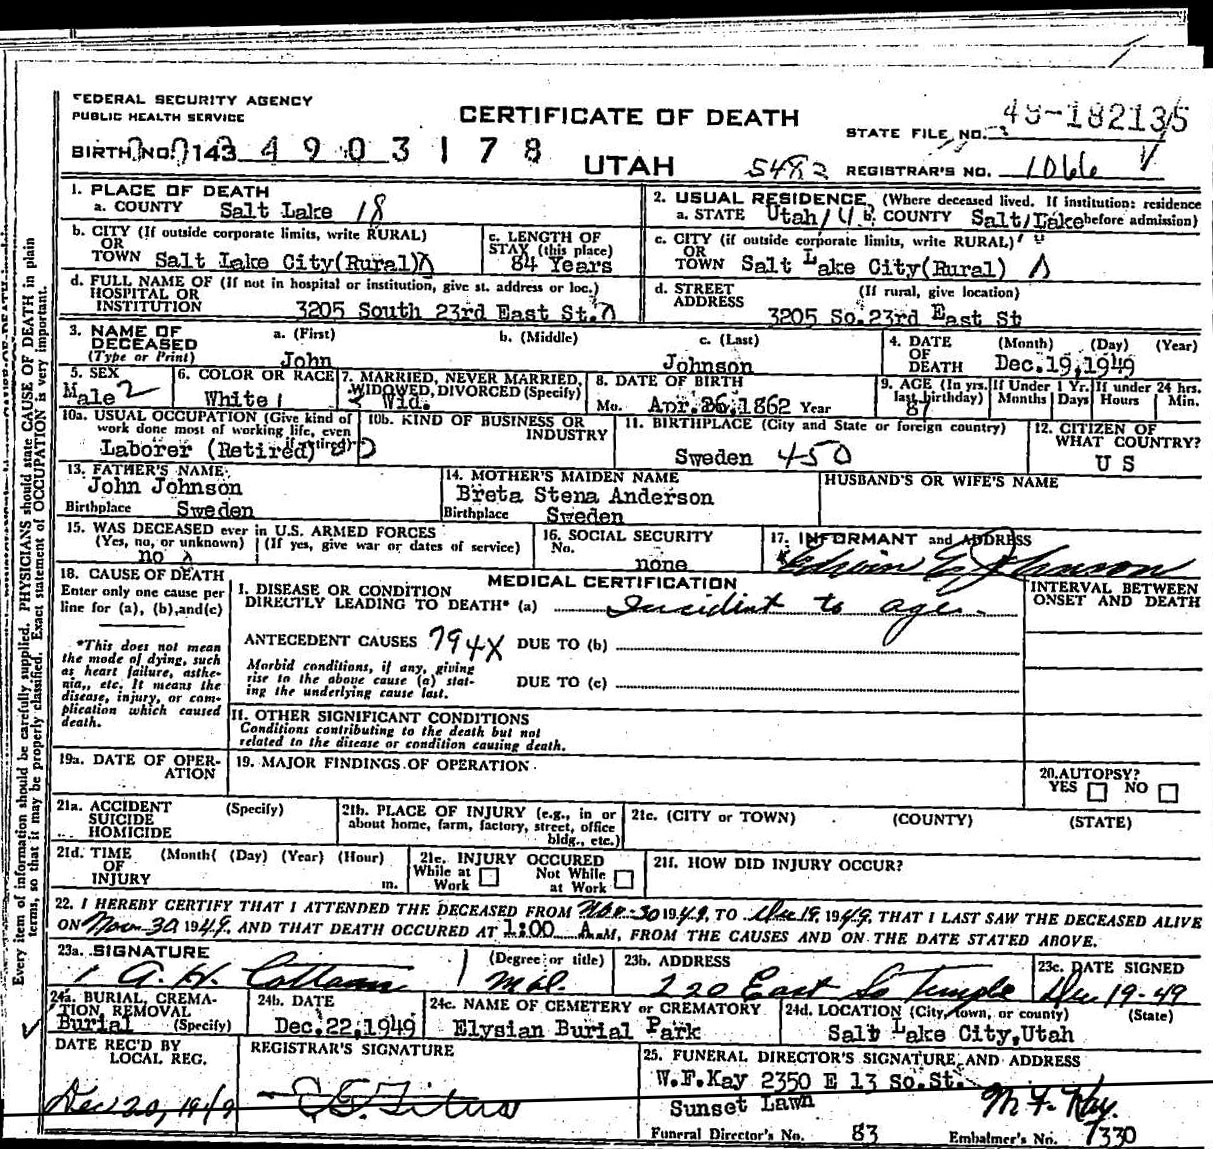 FEDERAL SECURITY AGENCY
PUBLIC HEALTH SERVICE
CERTIFICATE OF DEATH
UTAH
STATE FILE NO. 49-182135
BIRTH NO. 143 4903178
5482 REGISTRAR'S NO. 1066
1. PLACE OF DEATH
a. COUNTY Salt Lake 18
b. CITY (If outside corporate limits, write RURAL)
OR
TOWN Salt Lake City(Rural)
c. LENGTH OF
STAY (this place)
84 Years
d. FULL NAME OF (If not in hospital or institution, give st. address or loc.)
HOSPITAL OR
INSTITUTION 3205 South 23rd East St.
2. USUAL RESIDENCE (Where deceased lived. If institution: residence
a. STATE Utah b. COUNTY Salt Lake before admission)
c. CITY (if outside corporate limits, write RURAL)
OR
TOWN Salt Lake City(Rural)
d. STREET (If rural, give location)
ADDRESS 3205 So.23rd East St
3. NAME OF a. (First) b. (Middle) c. (Last)
DECEASED
(Type or Print) John Johnson
4. DATE (Month) (Day) (Year)
OF
DEATH Dec.19,1949
5. SEX
Male 2
6. COLOR OR RACE
White 1
7. MARRIED, NEVER MARRIED,
WIDOWED, DIVORCED (Specify)
Wid.
8. DATE OF BIRTH
Mo. Apr.26,1862 Year
9. AGE (In yrs. last birthday)
87
If Under 1 Yr.
Months Days
If under 24 hrs.
Hours Min.
10a. USUAL OCCUPATION (Give kind of
work done most of working life, even
if retired)
Laborer (Retired)
10b. KIND OF BUSINESS OR
INDUSTRY
11. BIRTHPLACE (City and State or foreign country)
Sweden 450
12. CITIZEN OF
WHAT COUNTRY?
U S
13. FATHER'S NAME
John Johnson
Birthplace Sweden
14. MOTHER'S MAIDEN NAME
Breta Stena Anderson
Birthplace Sweden
HUSBAND'S OR WIFE'S NAME
15. WAS DECEASED ever in U.S. ARMED FORCES
(Yes, no, or unknown) (If yes, give war or dates of service)
no
16. SOCIAL SECURITY
No.
none
17. INFORMANT and ADDRESS
Edwin E Johnson
18. CAUSE OF DEATH
Enter only one cause per
line for (a), (b), and (c)
*This does not mean
the mode of dying, such
as heart failure, asthe-
nia,, etc. It means the
disease, injury, or com-
plication which caused
death.
MEDICAL CERTIFICATION
I. DISEASE OR CONDITION
DIRECTLY LEADING TO DEATH* (a) Incident to age.
ANTECEDENT CAUSES 794X DUE TO (b)
Morbid conditions, if any, giving
rise to the above cause (a) stat-
ing the underlying cause last.
DUE TO (c)
II. OTHER SIGNIFICANT CONDITIONS
Conditions contributing to the death but not
related to the disease or condition causing death.
INTERVAL BETWEEN
ONSET AND DEATH
19a. DATE OF OPER-
ATION
19. MAJOR FINDINGS OF OPERATION
20. AUTOPSY?
YES NO
21a. ACCIDENT (Specify)
SUICIDE
HOMICIDE
21b. PLACE OF INJURY (e.g., in or
about home, farm, factory, street, office
bldg., etc.)
21c. (CITY or TOWN) (COUNTY) (STATE)
21d. TIME (Month( (Day) (Year) (Hour)
OF
INJURY m.
21e. INJURY OCCURED
While at Work Not While at Work
21f. HOW DID INJURY OCCUR?
22. I HEREBY CERTIFY THAT I ATTENDED THE DECEASED FROM Nov-30 1949, TO Dec 19, 1949, THAT I LAST SAW THE DECEASED ALIVE
ON Nov 30, 1949, AND THAT DEATH OCCURED AT 1:00 A.M, FROM THE CAUSES AND ON THE DATE STATED ABOVE.
23a. SIGNATURE (Degree or title)
A. H. Cottam M.D.
23b. ADDRESS
220 East So Temple
23c. DATE SIGNED
Dec 19-49
24a. BURIAL, CREMA-
TION, REMOVAL
Burial (Specify)
24b. DATE
Dec.22,1949
24c. NAME OF CEMETERY or CREMATORY
Elysian Burial Park
24d. LOCATION (City, town, or county) (State)
Salt Lake City,Utah
DATE REC'D BY
LOCAL REG.
Dec 20, 1949
REGISTRAR'S SIGNATURE
25. FUNERAL DIRECTOR'S SIGNATURE AND ADDRESS
W.F.Kay 2350 E 13 So.St.
Sunset Lawn
Funeral Director's No. 83 Embalmer's No. 7330
Every item of information should be carefully supplied. PHYSICIANS should state CAUSE OF DEATH in plain
terms, so that it may be properly classified. Exact statement of OCCUPATION is very important.